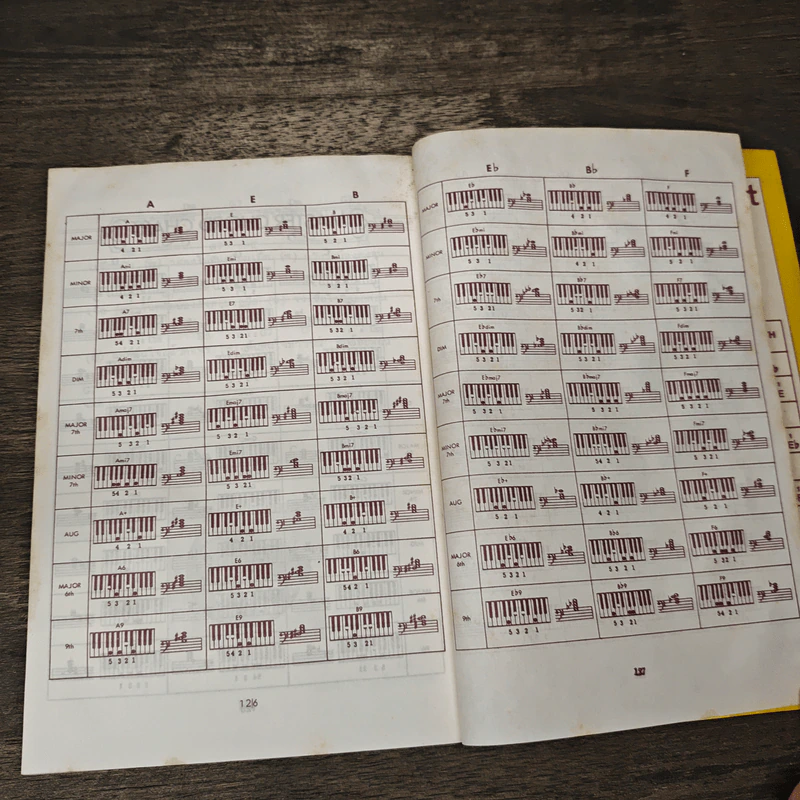 A E B
MAJOR A E B
4 2 1 5 3 1 5 2 1
MINOR Ami Emi Bmi
4 2 1 5 2 1 5 2 1
7th A7 E7 B7
5 4 2 1 5 3 2 1 5 3 2 1
DIM Adim Edim Bdim
5 3 2 1 5 3 2 1 5 3 2 1
MAJOR 7th Amaj7 Emaj7 Bmaj7
5 3 2 1 5 3 2 1 5 3 2 1
MINOR 7th Ami7 Emi7 Bmi7
5 4 2 1 5 3 2 1 5 3 2 1
AUG A+ E+ B+
4 2 1 4 2 1 4 2 1
MAJOR 6th A6 E6 B6
5 3 2 1 5 3 2 1 5 4 2 1
9th A9 E9 B9
5 3 2 1 5 4 2 1 5 3 2 1
126
E♭ B♭ F
MAJOR E♭ B♭ F
5 3 1 4 2 1 4 2 1
MINOR E♭mi B♭mi Fmi
5 3 1 4 2 1 5 2 1
7th E♭7 B♭7 F7
5 3 2 1 5 3 2 1 5 3 2 1
DIM E♭dim B♭dim Fdim
5 3 2 1 5 3 2 1 5 3 2 1
MAJOR 7th E♭maj7 B♭maj7 Fmaj7
5 3 2 1 5 3 2 1 5 3 2 1
MINOR 7th E♭mi7 B♭mi7 Fmi7
5 3 2 1 5 4 2 1 5 3 2 1
AUG E♭+ B♭+ F+
5 2 1 4 2 1 5 2 1
MAJOR 6th E♭6 B♭6 F6
5 3 2 1 5 3 2 1 5 3 2 1
9th E♭9 B♭9 F9
5 3 2 1 5 3 2 1 5 4 2 1
127
t
H
E
E♭